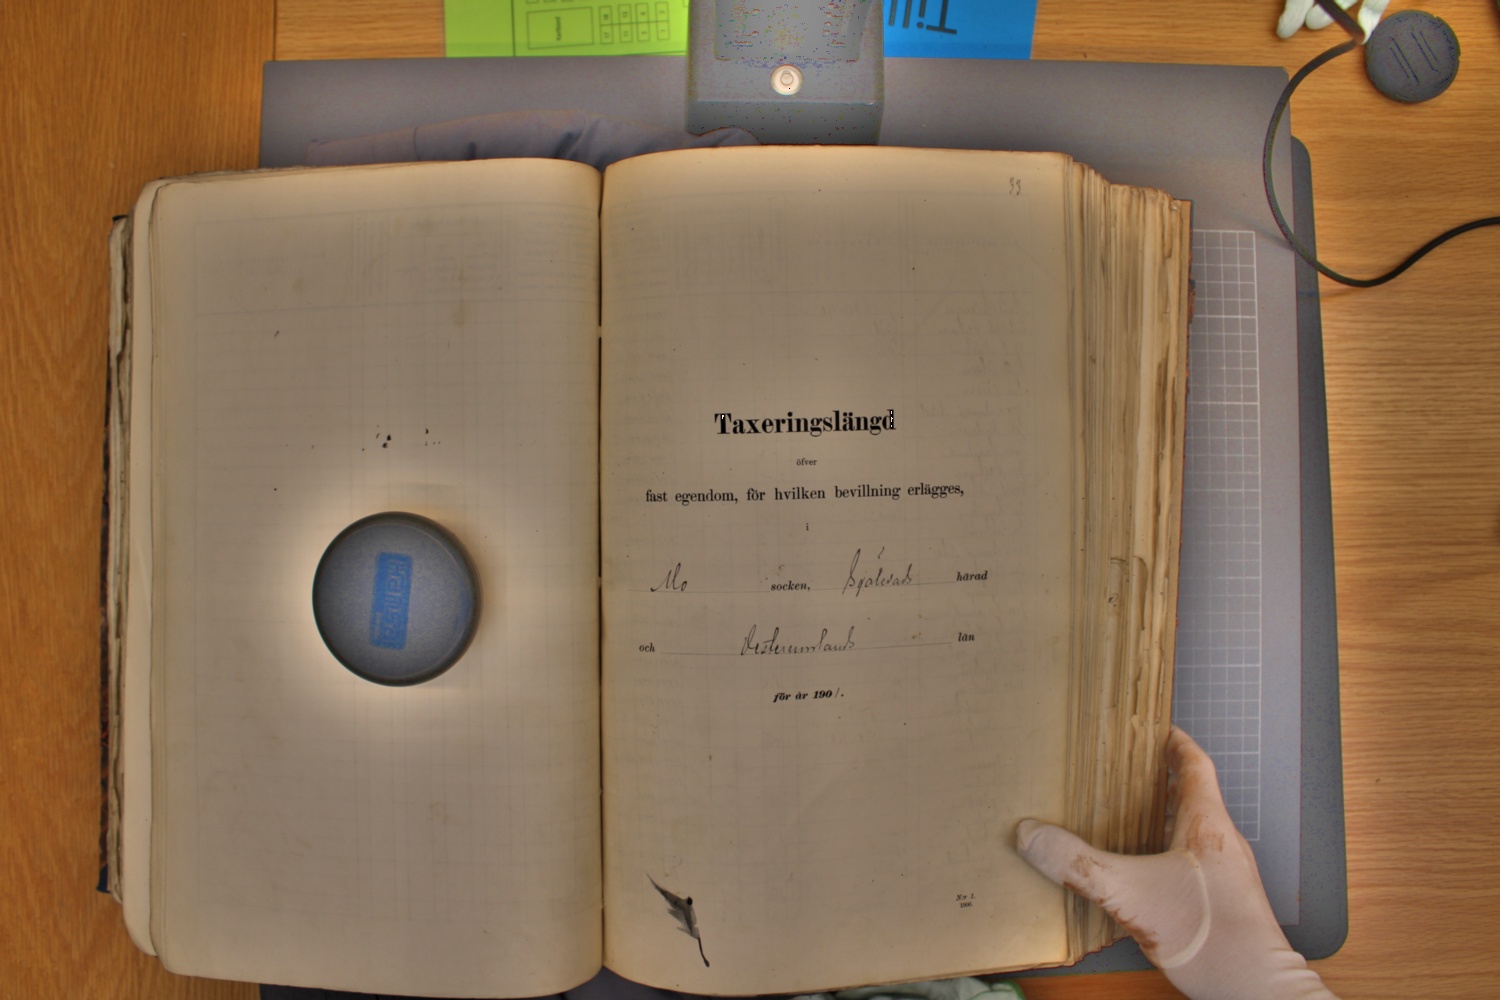 Till
33
Taxeringslängd
öfver
fast egendom, för hvilken bevillning erlägges,
i
Mo socken, Själevads härad
och Vesternorrlands län
för år 1901.
N:r 1.